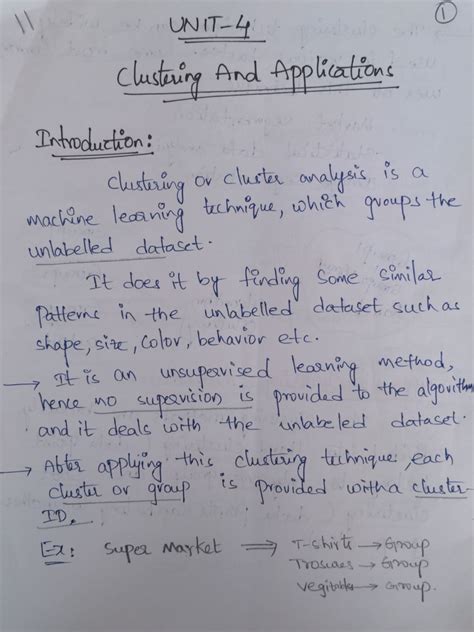 UNIT-4
①
Clustering And Applications
Introduction:
Clustering or cluster analysis is a
machine learning technique, which groups the
unlabelled dataset.
It does it by finding some similar
Patterns in the unlabelled dataset such as
shape, size, Color, behavior etc.
→ It is an unsupervised learning method,
hence no supervision is provided to the algorithm
and it deals with the unlabeled dataset.
→ After applying this clustering technique, each
cluster or group is provided with a cluster-
ID.
Ex: Super Market ⟹ T-shirts → Group
Trosuers → Group
Vegitables → Group.